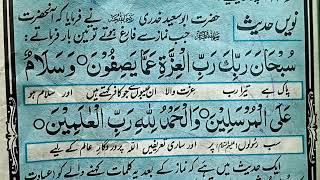 نویں حدیث
حضرت ابوسعید خدری نے فرمایا کہ آنحضرت
جب نماز سے فارغ ہوتے تو تین بار فرماتے:
سُبْحَانَ رَبِّكَ رَبِّ الْعِزَّةِ عَمَّا يَصِفُوْنَ وَسَلَامٌ
پاک ہے تیرا رب عزت والا ان عیبوں سے جو کافر کہتے ہیں اور سلام ہو
عَلَى الْمُرْسَلِيْنَ وَالْحَمْدُ لِلّٰهِ رَبِّ الْعٰلَمِيْنَ
سب رسولوں پر اور ساری تعریفیں اللہ پروردگار عالم کے لیے
ایک حدیث میں ہے کہ نماز کے بعد یہ کلمات کہنے والے کو